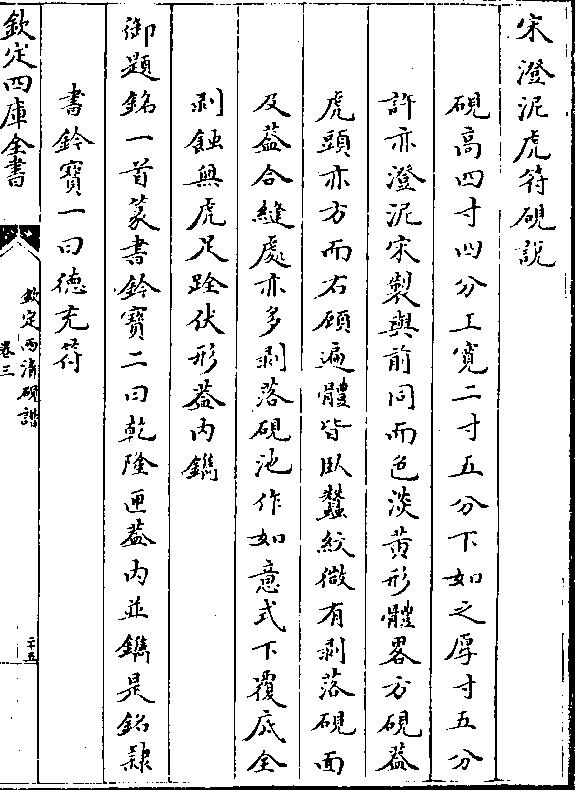 宋澄泥虎符硯說
硯高四寸四分上寬二寸五分下如之厚寸五分
許亦澄泥宋製與前同而色淡黄形體畧方硯葢
虎頭亦方而右顧遍體皆臥蠶紋微有剥落硯面
及葢合縫處亦多剥落硯池作如意式下覆底全
剥蝕無虎足跧伏形葢内鐫
御題銘一首篆書鈐寶二曰乾隆匣葢内並鐫是銘隸
書鈐寶一曰德充符
欽定四庫全書
欽定西清硯譜
卷三
二十五